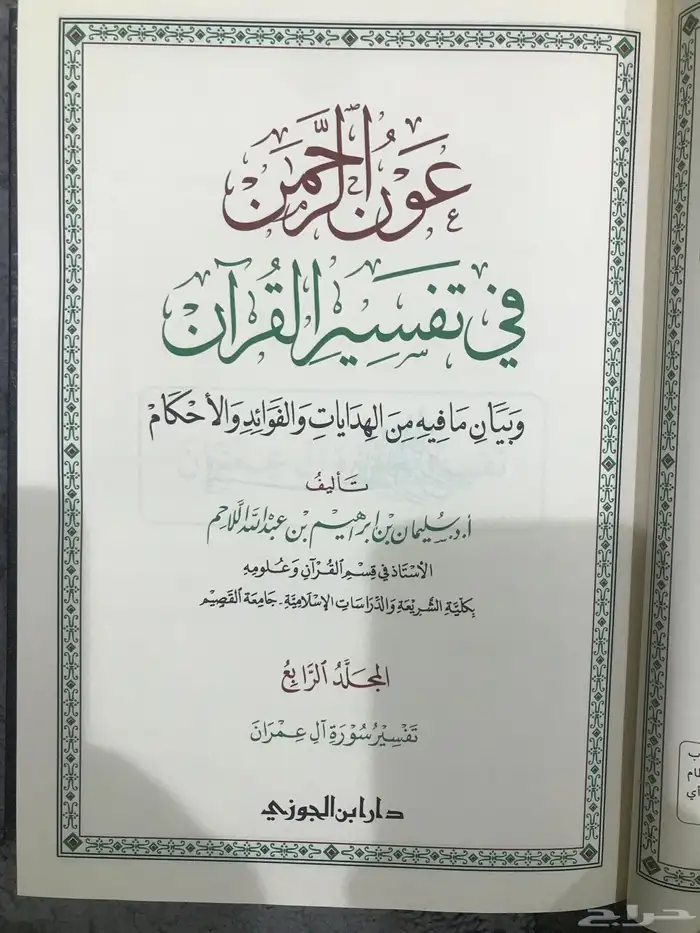 عَوْنُ الرَّحْمَنِ
فِي تَفْسِيرِ الْقُرْآنِ
وَبَيَانِ مَا فِيهِ مِنَ الهِدَايَاتِ وَالفَوَائِدِ وَالأَحْكَامِ
تَأليفُ
أ.د. سليمان بن ابراهيم بن عبدالله اللاحم
الأُسْتَاذ فِي قِسْمِ القُرْآنِ وَعُلُومِهِ
بِكُلِّيَّةِ الشَّرِيعَةِ وَالدِّرَاسَاتِ الإِسْلَامِيَّةِ - جَامِعَة القَصِيم
المُجَلَّدُ الرَّابِعُ
تَفْسِيرُ سُورَةِ آلِ عِمْرَانَ
دار ابن الجوزي
حراج